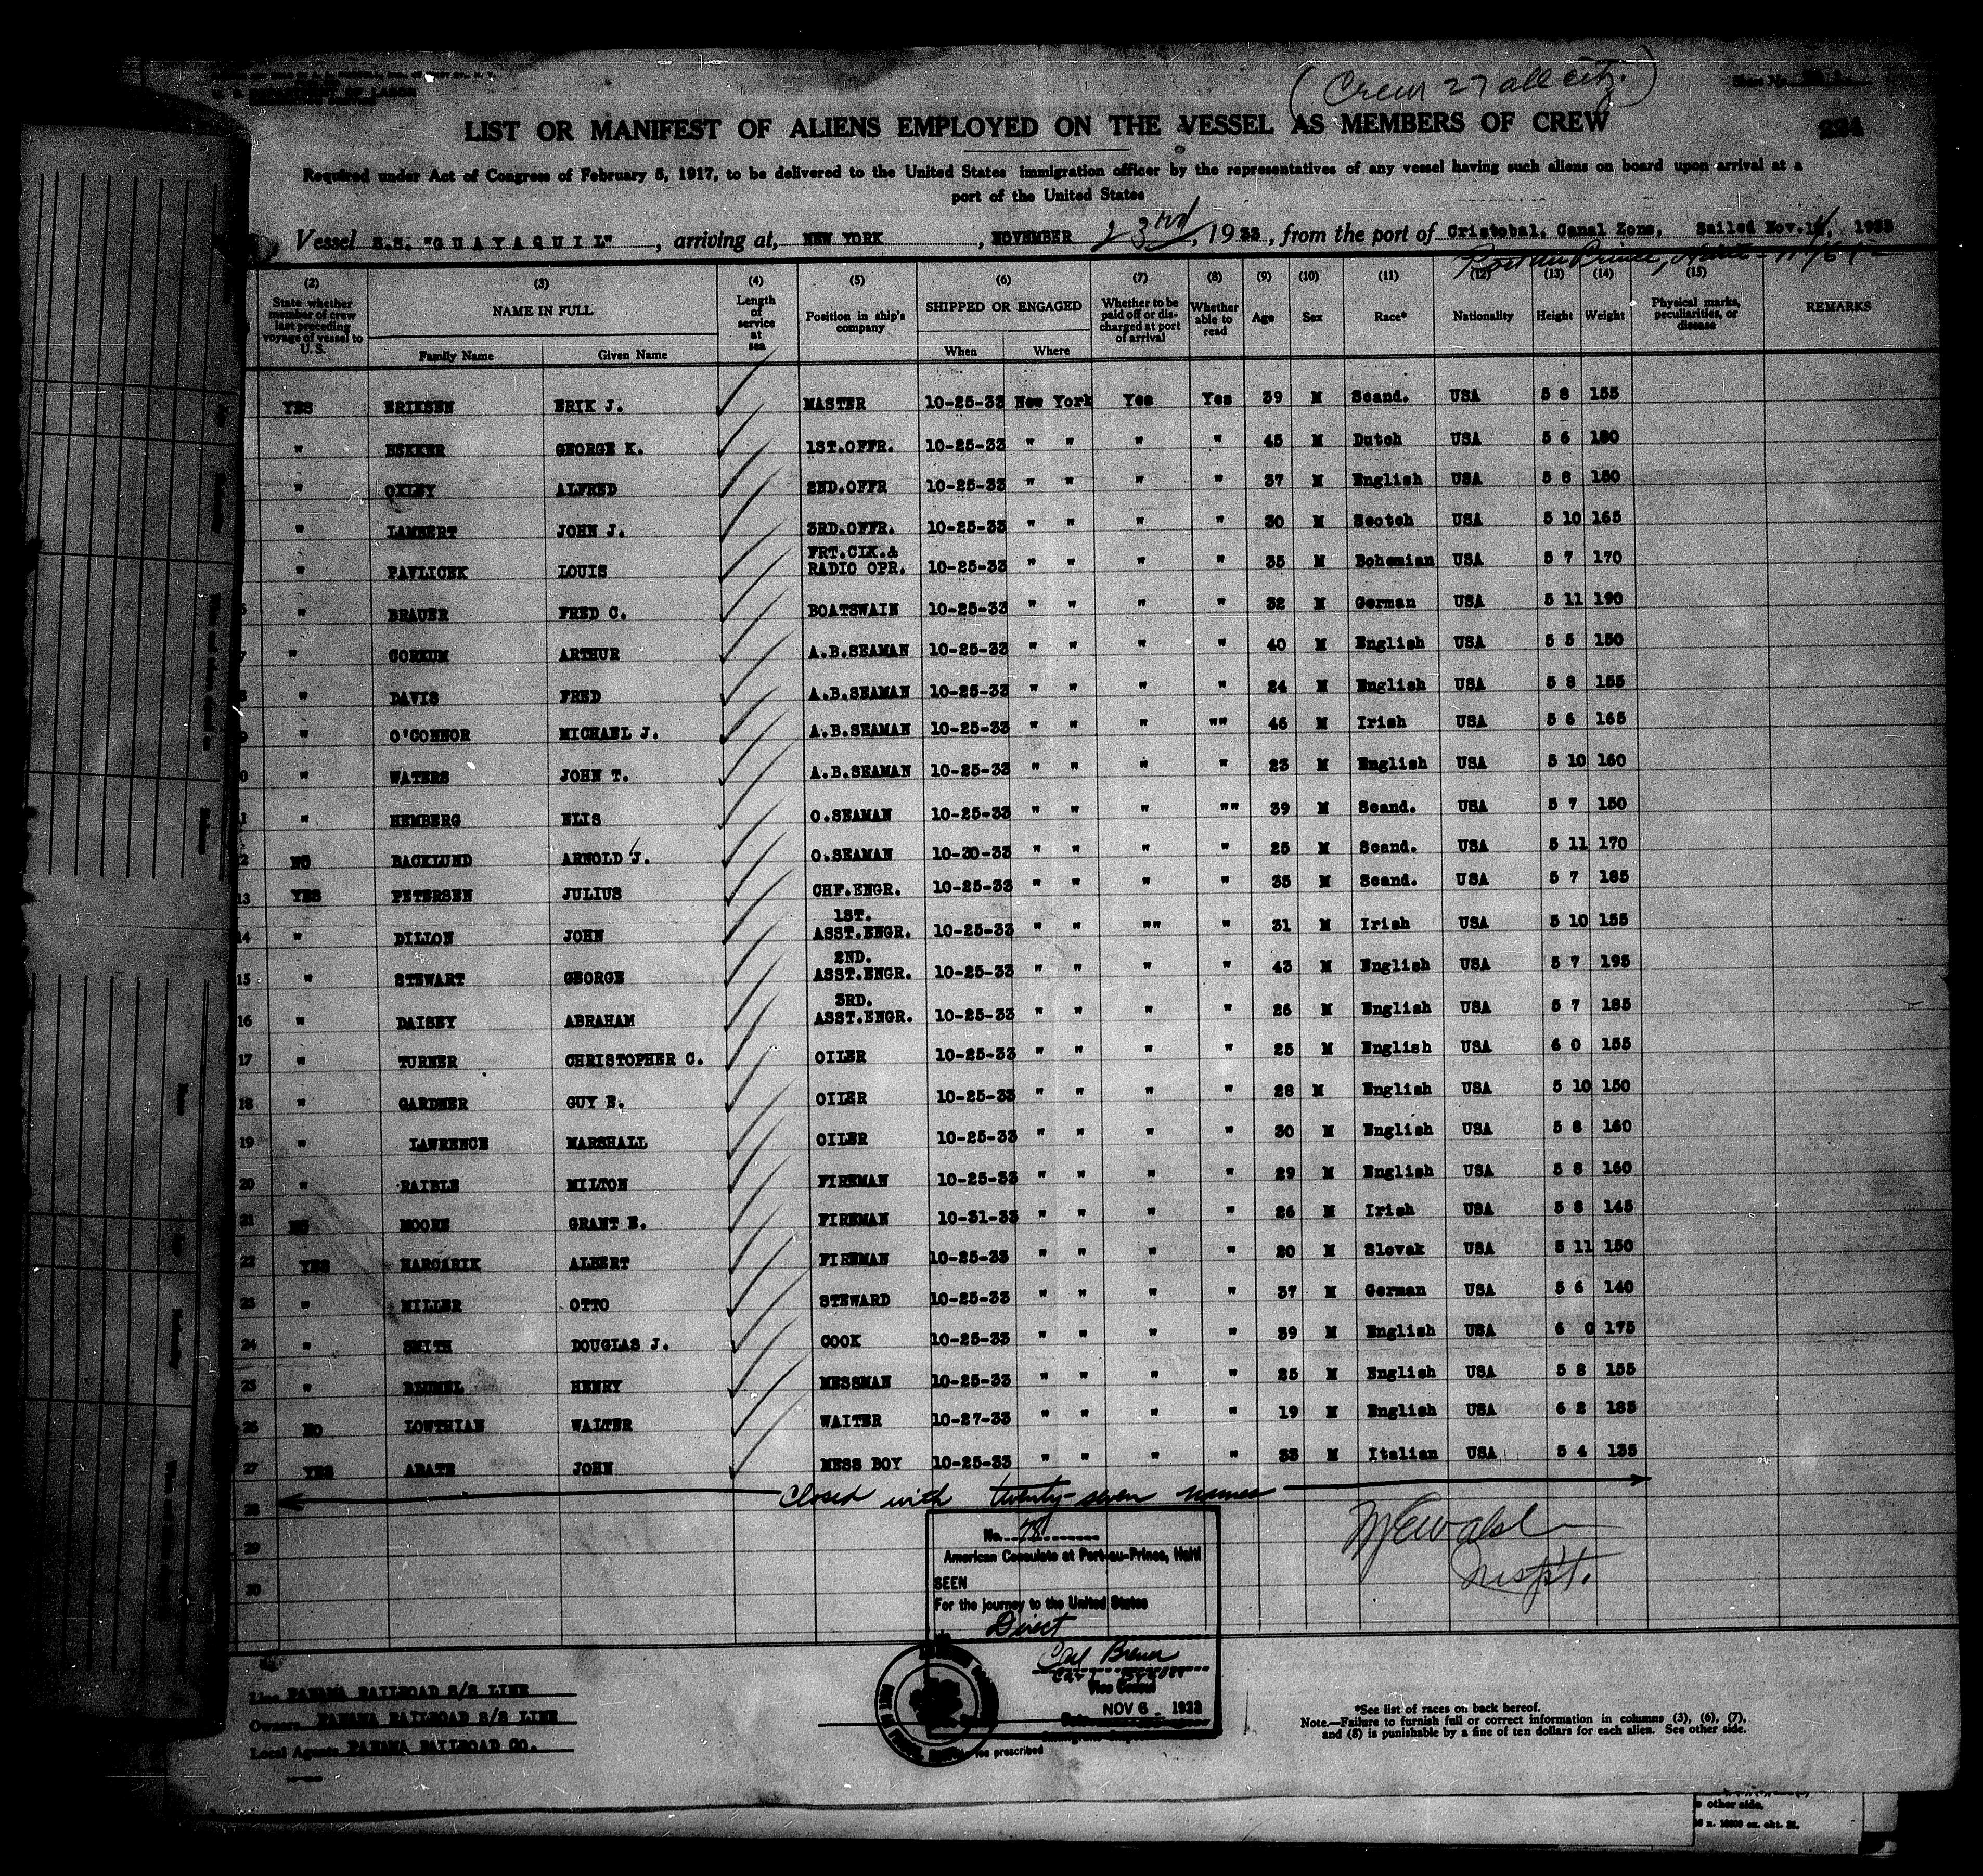 (Crew 27 all citz.)
LIST OR MANIFEST OF ALIENS EMPLOYED ON THE VESSEL AS MEMBERS OF CREW
224
Required under Act of Congress of February 5, 1917, to be delivered to the United States immigration officer by the representatives of any vessel having such aliens on board upon arrival at a
port of the United States
Vessel S.S. "GUAYAQUIL", arriving at, NEW YORK, NOVEMBER 23rd, 1933, from the port of Cristobal, Canal Zone, Sailed Nov. 14, 1933
Port au Prince, Haiti
(2) (3) (4) (5) (6) (7) (8) (9) (10) (11) (12) (13) (14) (15)
State whether member of crew last preceding voyage of vessel to U. S. NAME IN FULL Length of service at sea Position in ship's company SHIPPED OR ENGAGED Whether to be paid off or discharged at port of arrival Whether able to read Age Sex Race* Nationality Height Weight Physical marks, peculiarities, or disease REMARKS
Family Name Given Name When Where
YES ERIKSEN ERIK J. MASTER 10-25-33 New York Yes Yes 39 M Scand. USA 5 8 155
" BEKKER GEORGE K. 1ST.OFFR. 10-25-33 " " " " 45 M Dutch USA 5 6 180
" OXLEY ALFRED 2ND.OFFR 10-25-33 " " " " 37 M English USA 5 8 150
" LAMBERT JOHN J. 3RD.OFFR. 10-25-33 " " " " 30 M Scotch USA 5 10 165
FRT.CLK.&
" PAVLICEK LOUIS RADIO OPR. 10-25-33 " " " " 35 M Bohemian USA 5 7 170
6 " BRAUER FRED C. BOATSWAIN 10-25-33 " " " " 32 M German USA 5 11 190
7 " CORKUM ARTHUR A.B.SEAMAN 10-25-33 " " " " 40 M English USA 5 5 150
8 " DAVIS FRED A.B.SEAMAN 10-25-33 " " " " 24 M English USA 5 8 155
9 " O'CONNOR MICHAEL J. A.B.SEAMAN 10-25-33 " " " "" 46 M Irish USA 5 6 165
0 " WATERS JOHN T. A.B.SEAMAN 10-25-33 " " " " 23 M English USA 5 10 160
1 " HEMBERG ELIS O.SEAMAN 10-25-33 " " " "" 39 M Scand. USA 5 7 150
2 NO BACKLUND ARNOLD J. O.SEAMAN 10-30-33 " " " " 25 M Scand. USA 5 11 170
13 YES PETERSEN JULIUS CHF.ENGR. 10-25-33 " " " " 35 M Scand. USA 5 7 185
1ST.
14 " DILLON JOHN ASST.ENGR. 10-25-33 " " "" " 31 M Irish USA 5 10 155
2ND.
15 " STEWART GEORGE ASST.ENGR. 10-25-33 " " " " 43 M English USA 5 7 195
3RD.
16 " DAISEY ABRAHAM ASST.ENGR. 10-25-33 " " " " 26 M English USA 5 7 185
17 " TURNER CHRISTOPHER C. OILER 10-25-33 " " " " 25 M English USA 6 0 155
18 " GARDNER GUY E. OILER 10-25-33 " " " " 28 M English USA 5 10 150
19 " LAWRENCE MARSHALL OILER 10-25-33 " " " " 30 M English USA 5 8 160
20 " RAIBLE MILTON FIREMAN 10-25-33 " " " " 29 M English USA 5 8 160
21 NO MOORE GRANT E. FIREMAN 10-31-33 " " " " 26 M Irish USA 5 8 145
22 YES HARCARIK ALBERT FIREMAN 10-25-33 " " " " 20 M Slovak USA 5 11 150
23 " MILLER OTTO STEWARD 10-25-33 " " " " 37 M German USA 5 6 140
24 " SMITH DOUGLAS J. COOK 10-25-33 " " " " 39 M English USA 6 0 175
25 " BLUMEL HENRY MESSMAN 10-25-33 " " " " 25 M English USA 5 8 155
26 NO LOWTHIAN WALTER WAITER 10-27-33 " " " " 19 M English USA 6 2 185
27 YES ABATE JOHN MESS BOY 10-25-33 " " " " 33 M Italian USA 5 4 135
Closed with twenty-seven names
28
29
30
No. 78
American Consulate at Port-au-Prince, Haiti
SEEN
For the journey to the United States
Direct
Carl Breuer
Vice Consul
NOV 6 1933
fee prescribed
MEWalsh
Inspt.
Line PANAMA RAILROAD S/S LINE
Owners PANAMA RAILROAD S/S LINE
Local Agents PANAMA RAILROAD CO.
*See list of races on back hereof.
Note.—Failure to furnish full or correct information in columns (3), (6), (7),
and (8) is punishable by a fine of ten dollars for each alien. See other side.
other side.